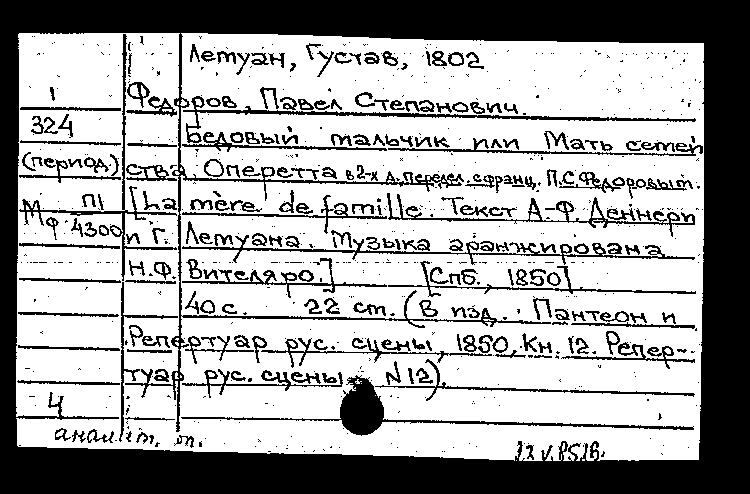 Летуан, Густав, 1802
1 Федоров, Павел Степанович.
324 Бедовый мальчик или Мать семей
(период.) ства. Оперетта в 2-х д. передел. с франц. П.С. Федоровым.
П1 [La mère de famille. Текст А-Ф. Деннери
Мф 4300 и Г. Летуана. Музыка аранжирована
Н.Ф. Вителяро.] [Спб., 1850].
40 с. 22 см. (В изд.: Пантеон и
Репертуар рус. сцены, 1850, Кн. 12. Репер-
туар рус. сцены N 12).
4
аналит. оп.